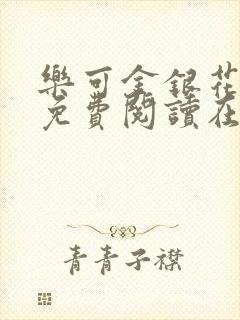 樂可金銀花
免費閱讀在
青青子襟